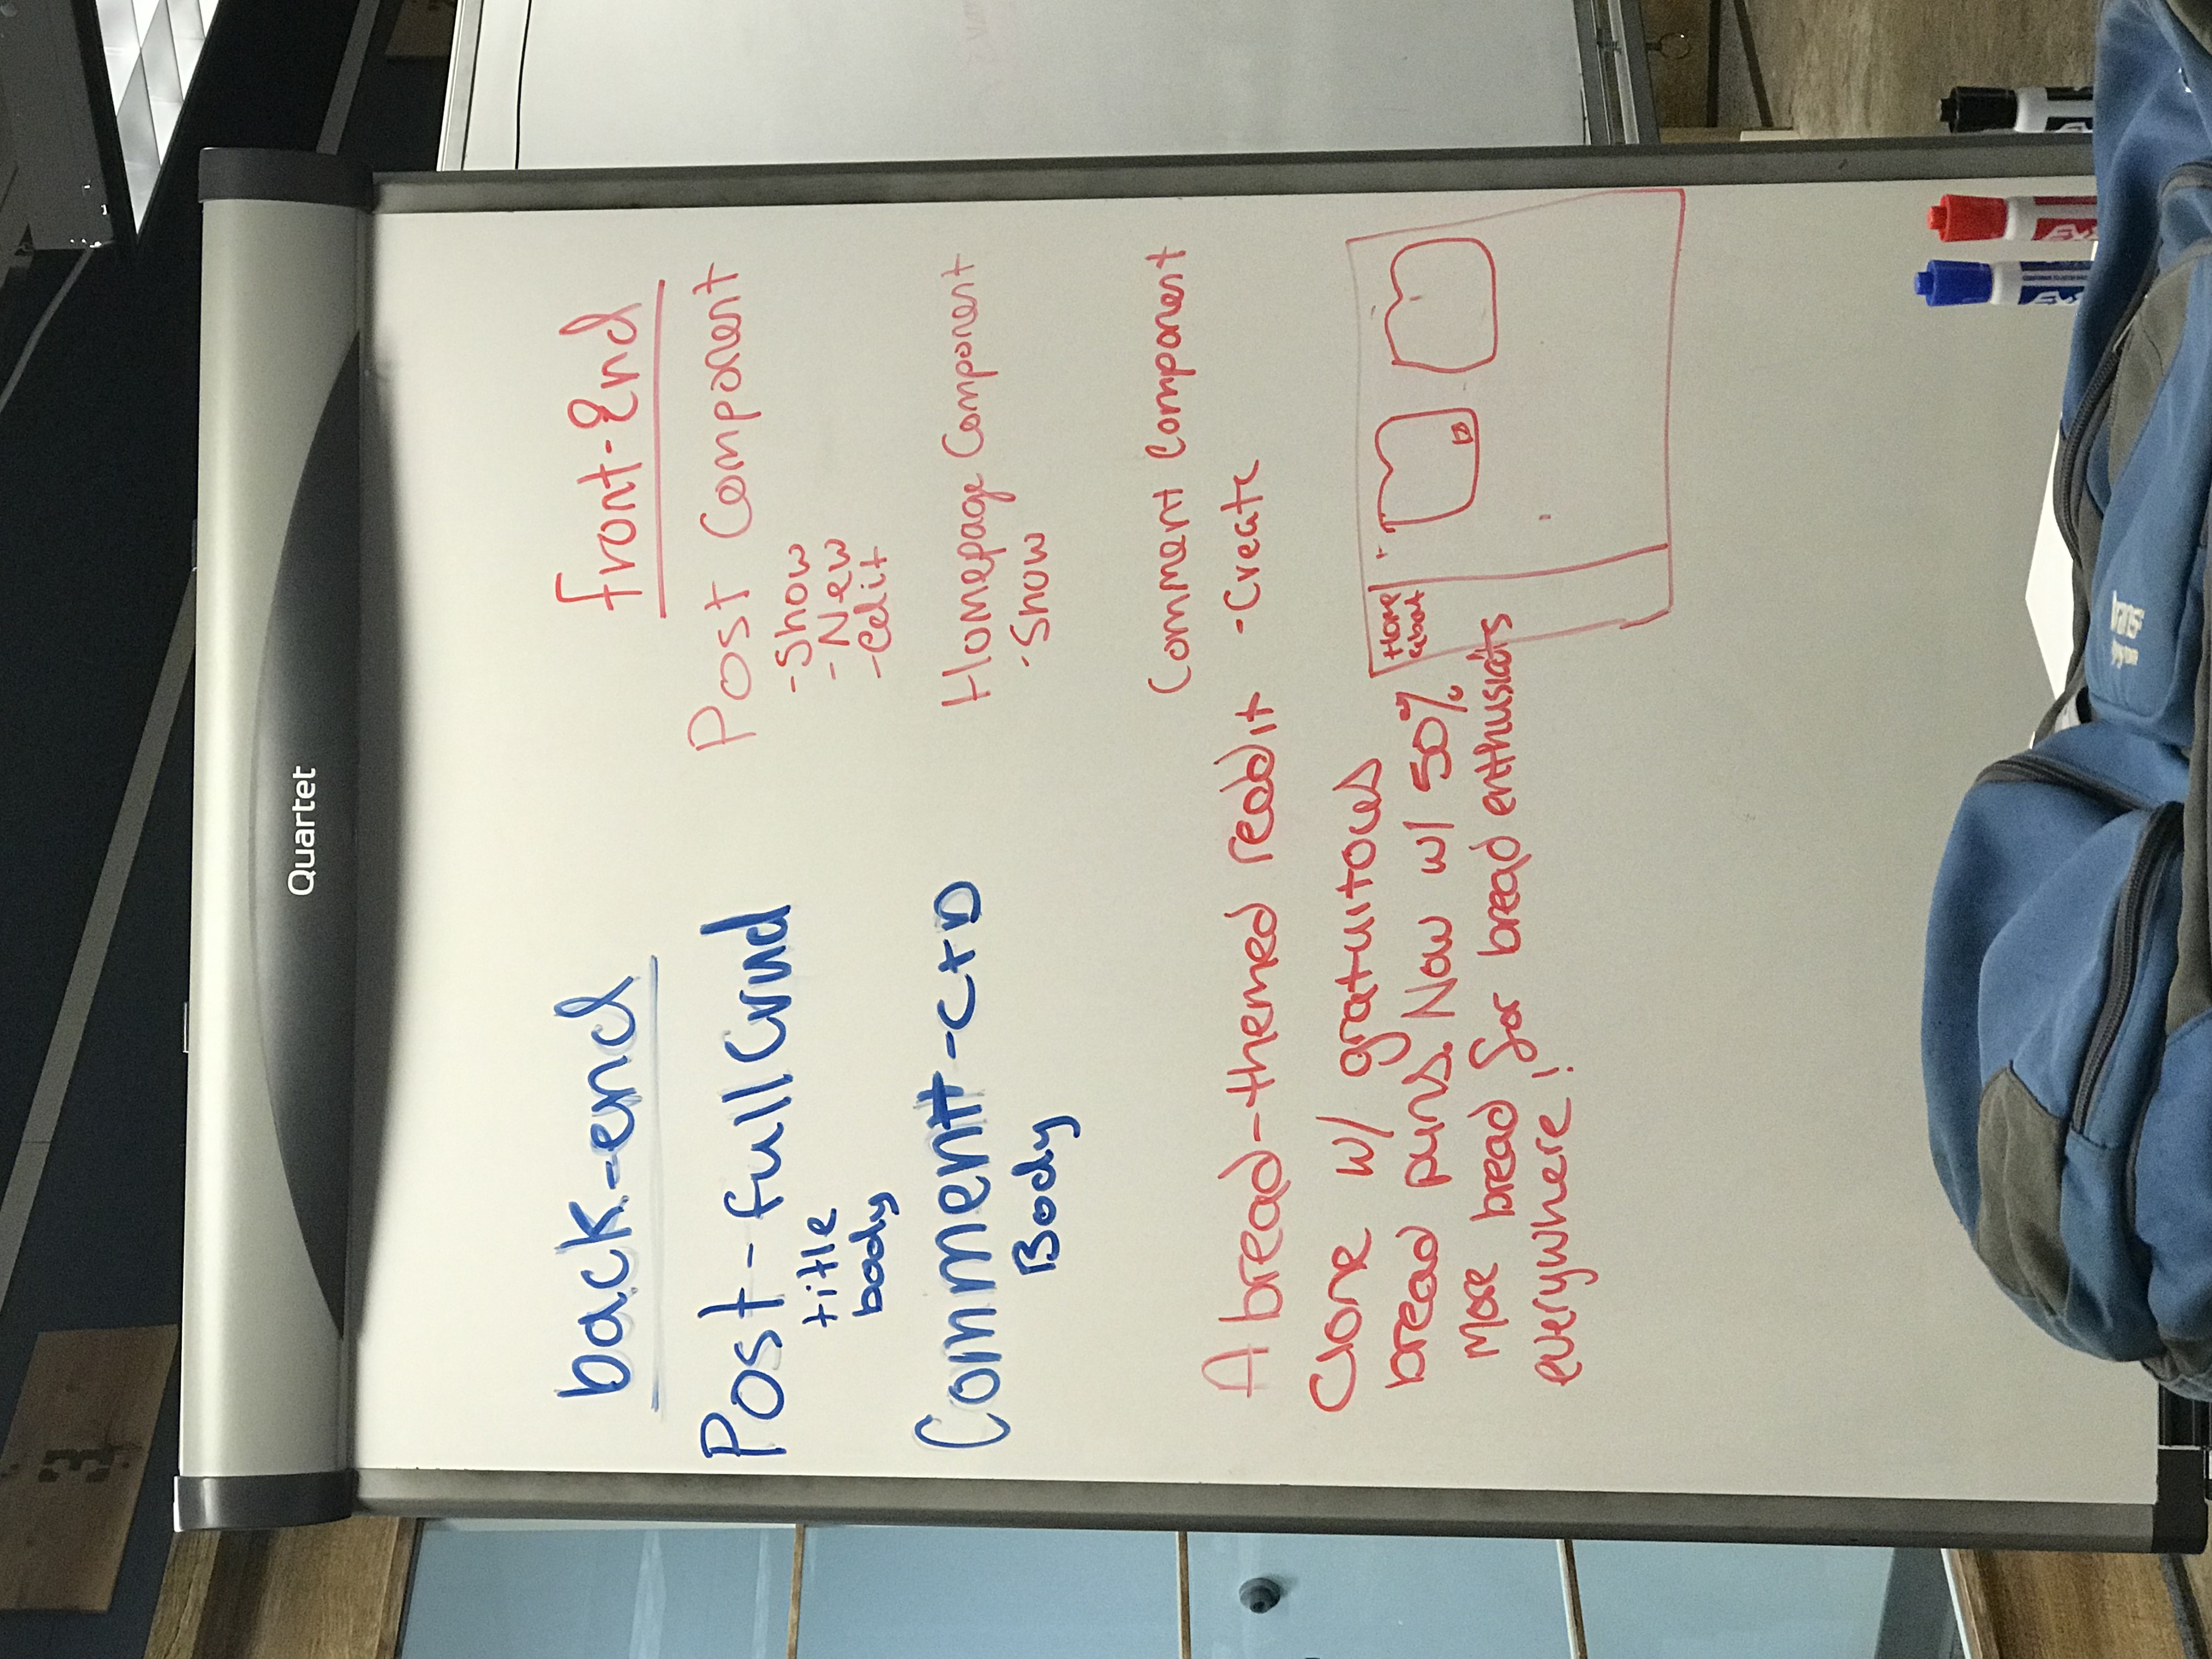 3
Quartet
back-end
Post-full Crud
title
body
Comment-C+D
Body
front-End
Post Component
-Show
-New
-edit
Homepage Component
-Show
Comment Component
-Create
A bread-themed reddit
Clone w/ gratuitous
bread puns. Now w/ 50%
more bread for bread enthusiasts
everywhere!
Home
about
trans